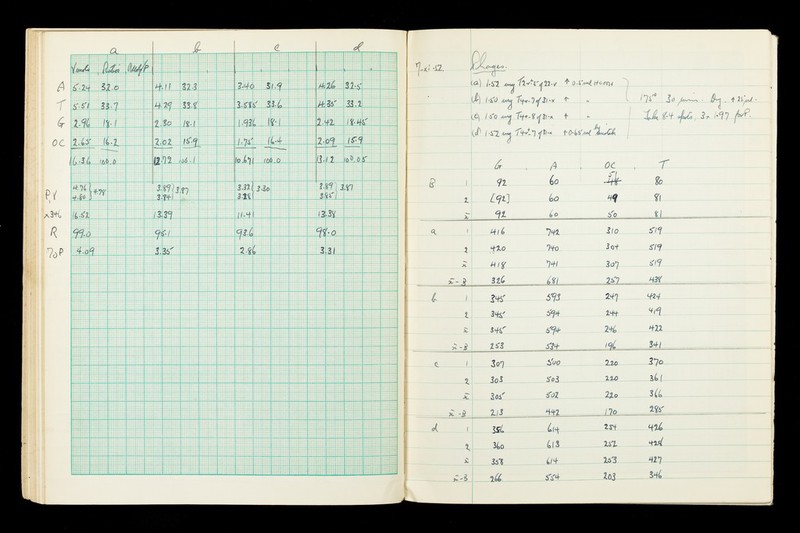 a b c d
A 5.24 32.0 4.11 32.3 3.40 31.9 4.26 32.5
T 5.51 33.7 4.29 33.8 3.585 33.6 4.35 33.2
G 2.96 18.1 2.30 18.1 1.936 18.1 2.42 18.45
OC 2.65 16.2 2.02 15.9 1.75 16.4 2.09 15.9
16.36 100.0 12.72 100.1 10.671 100.0 13.12 100.05
4.78 3.89 3.87 3.32 3.30 3.89 3.87
4.80 3.84 3.28 3.85
16.52 13.39 11.41 13.38
R 99.0 95.1 93.6 98.0
%P 4.09 3.35 2.86 3.31
7-xi-52 Phages.
(a) 1.52 mg
(b) 1.50 mg
(c) 1.50 mg
(d) 1.52 mg
175° 30 mins.
G A OC T
B 1 92 60 51 80
2 [92] 60 49 81
x̄ 92 60 50 81
a 1 416 742 310 519
2 420 740 304 519
x̄ 418 741 307 519
x̄-B 326 681 257 438
b 1 345 593 247 424
2 345 594 244 419
x̄ 345 594 246 422
x̄-B 253 534 196 341
c 1 307 500 220 370
2 303 503 220 361
x̄ 305 502 220 366
x̄-B 213 442 170 285
d 1 356 614 254 426
2 360 613 252 428
x̄ 358 614 253 427
x̄-B 266 554 203 346